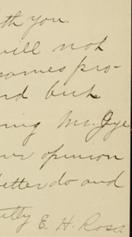 th you
will not
comes pro-
nd but
ning Mr. Jye
ur opinion
better do and
tly E. H. Ross